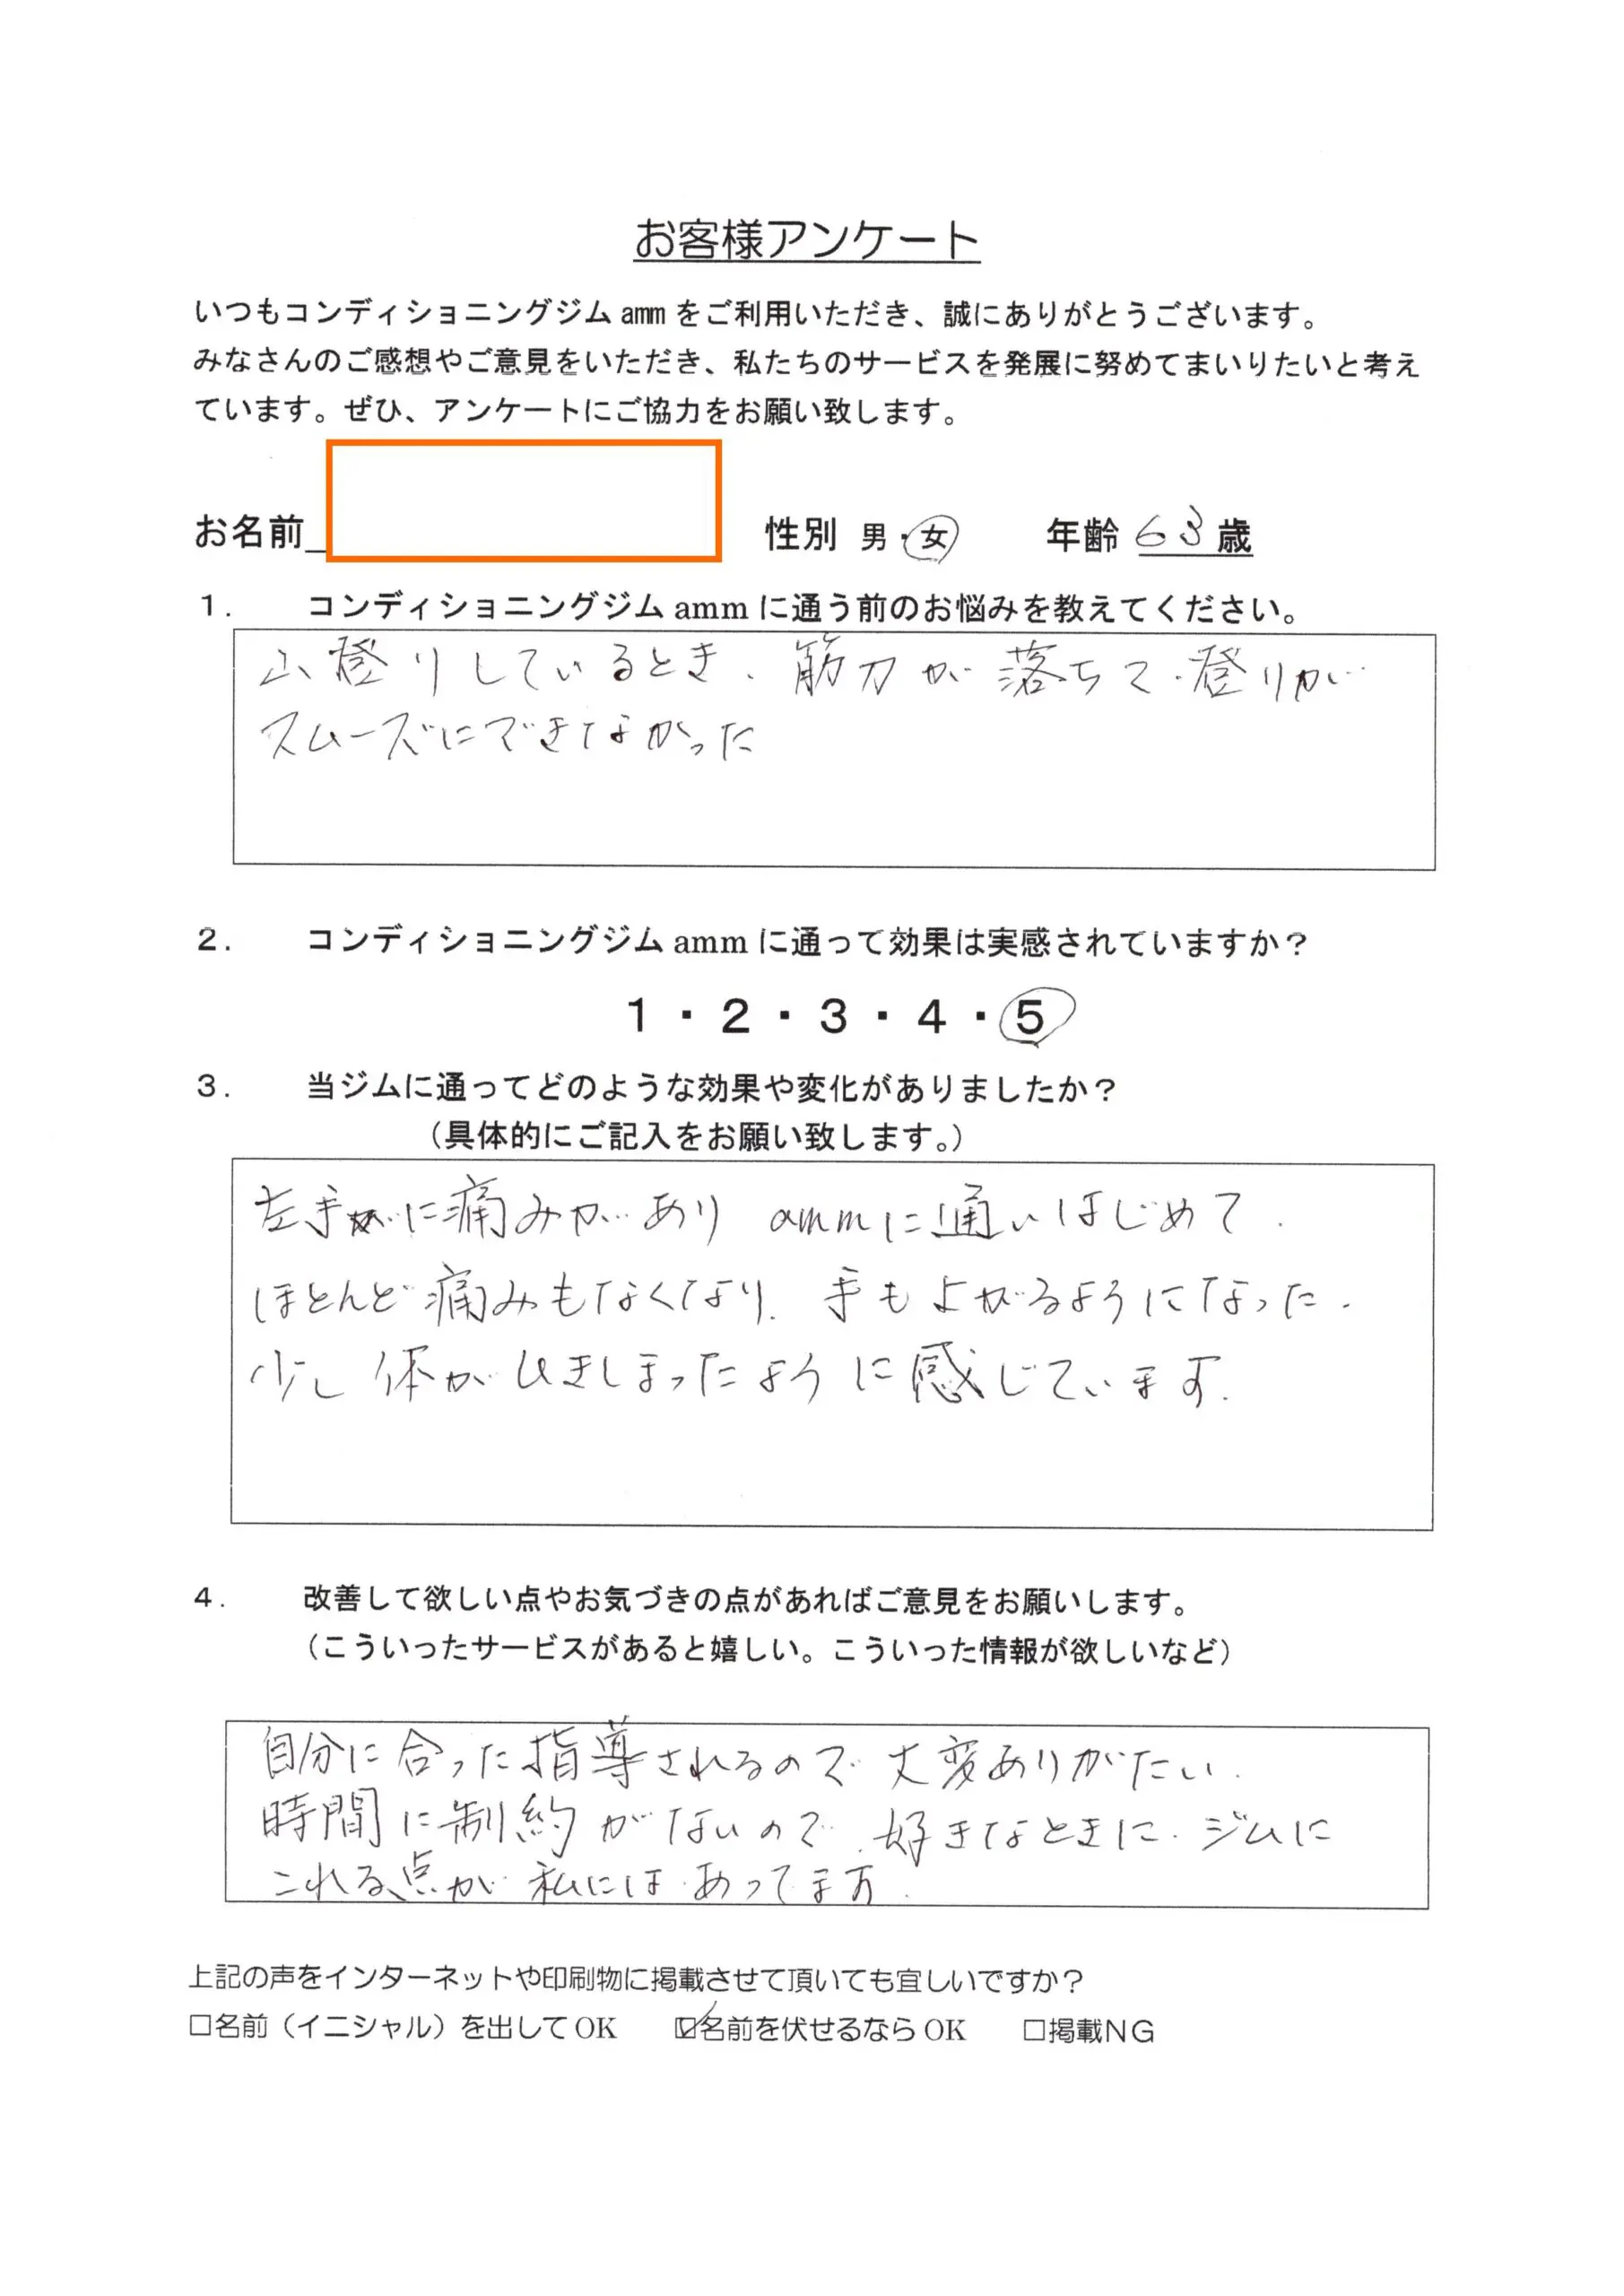 お客様アンケート
いつもコンディショニングジム amm をご利用いただき、誠にありがとうございます。
みなさんのご感想やご意見をいただき、私たちのサービスを発展に努めてまいりたいと考え
ています。ぜひ、アンケートにご協力をお願い致します。
お名前 性別 男・女 年齢 63 歳
1. コンディショニングジム amm に通う前のお悩みを教えてください。
山登りしているとき、筋力が落ちて、登りが
スムーズにできなかった
2. コンディショニングジム amm に通って効果は実感されていますか？
1・2・3・4・5
3. 当ジムに通ってどのような効果や変化がありましたか？
（具体的にご記入をお願い致します。）
左手に痛みがあり ammに通いはじめて、
ほとんど痛みもなくなり、手も上がるようになった.
少し体がひきしまったように感じています.
4. 改善して欲しい点やお気づきの点があればご意見をお願いします。
（こういったサービスがあると嬉しい。こういった情報が欲しいなど）
自分に合った指導されるので大変ありがたい.
時間に制約がないので、好きなときに、ジムに
これる点が私にはあってます.
上記の声をインターネットや印刷物に掲載させて頂いても宜しいですか？
□名前（イニシャル）を出して OK ☑名前を伏せるなら OK □掲載NG